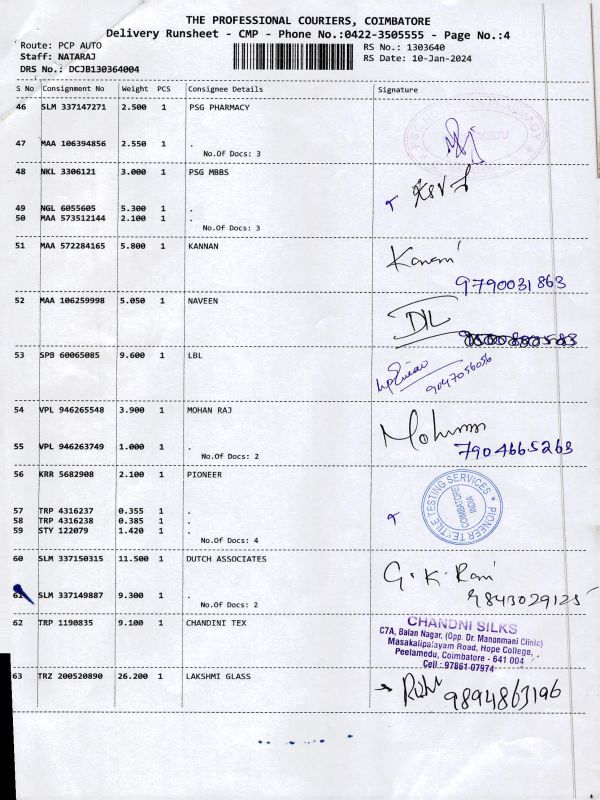 THE PROFESSIONAL COURIERS, COIMBATORE
Delivery Runsheet - CMP - Phone No.:0422-3505555 - Page No.:4
Route: PCP AUTO
Staff: NATARAJ
DRS No.: DCJB130364004
RS No.: 1303640
RS Date: 10-Jan-2024
S No Consignment No Weight PCS Consignee Details Signature
46 SLM 337147271 2.500 1 PSG PHARMACY
47 MAA 106394856 2.550 1 .
No.Of Docs: 3
48 NKL 3306121 3.000 1 PSG MBBS
49 NGL 6055605 5.300 1 .
50 MAA 573512144 2.100 1 .
No.Of Docs: 3
51 MAA 572284165 5.800 1 KANNAN
9790031863
52 MAA 106259998 5.050 1 NAVEEN
53 SPB 60065085 9.600 1 LBL
9047056056
54 VPL 946265548 3.900 1 MOHAN RAJ
55 VPL 946263749 1.000 1 .
No.Of Docs: 2
7904665263
56 KRR 5682908 2.100 1 PIONEER
57 TRP 4316237 0.355 1 .
58 TRP 4316238 0.385 1 .
59 STY 122079 1.420 1 .
No.Of Docs: 4
PIONEER TEXTILE TESTING SERVICES
COIMBATORE
INDIA
60 SLM 337150315 11.500 1 DUTCH ASSOCIATES
G. K. Rani
61 SLM 337149887 9.300 1 .
No.Of Docs: 2
9843029125
62 TRP 1190835 9.100 1 CHANDINI TEX
CHANDNI SILKS
C7A, Balan Nagar, (Opp. Dr. Manonmani Clinic)
Masakalipalayam Road, Hope College,
Peelamedu, Coimbatore - 641 004
Cell : 97861 07974
63 TRZ 200520890 26.200 1 LAKSHMI GLASS
9894863196